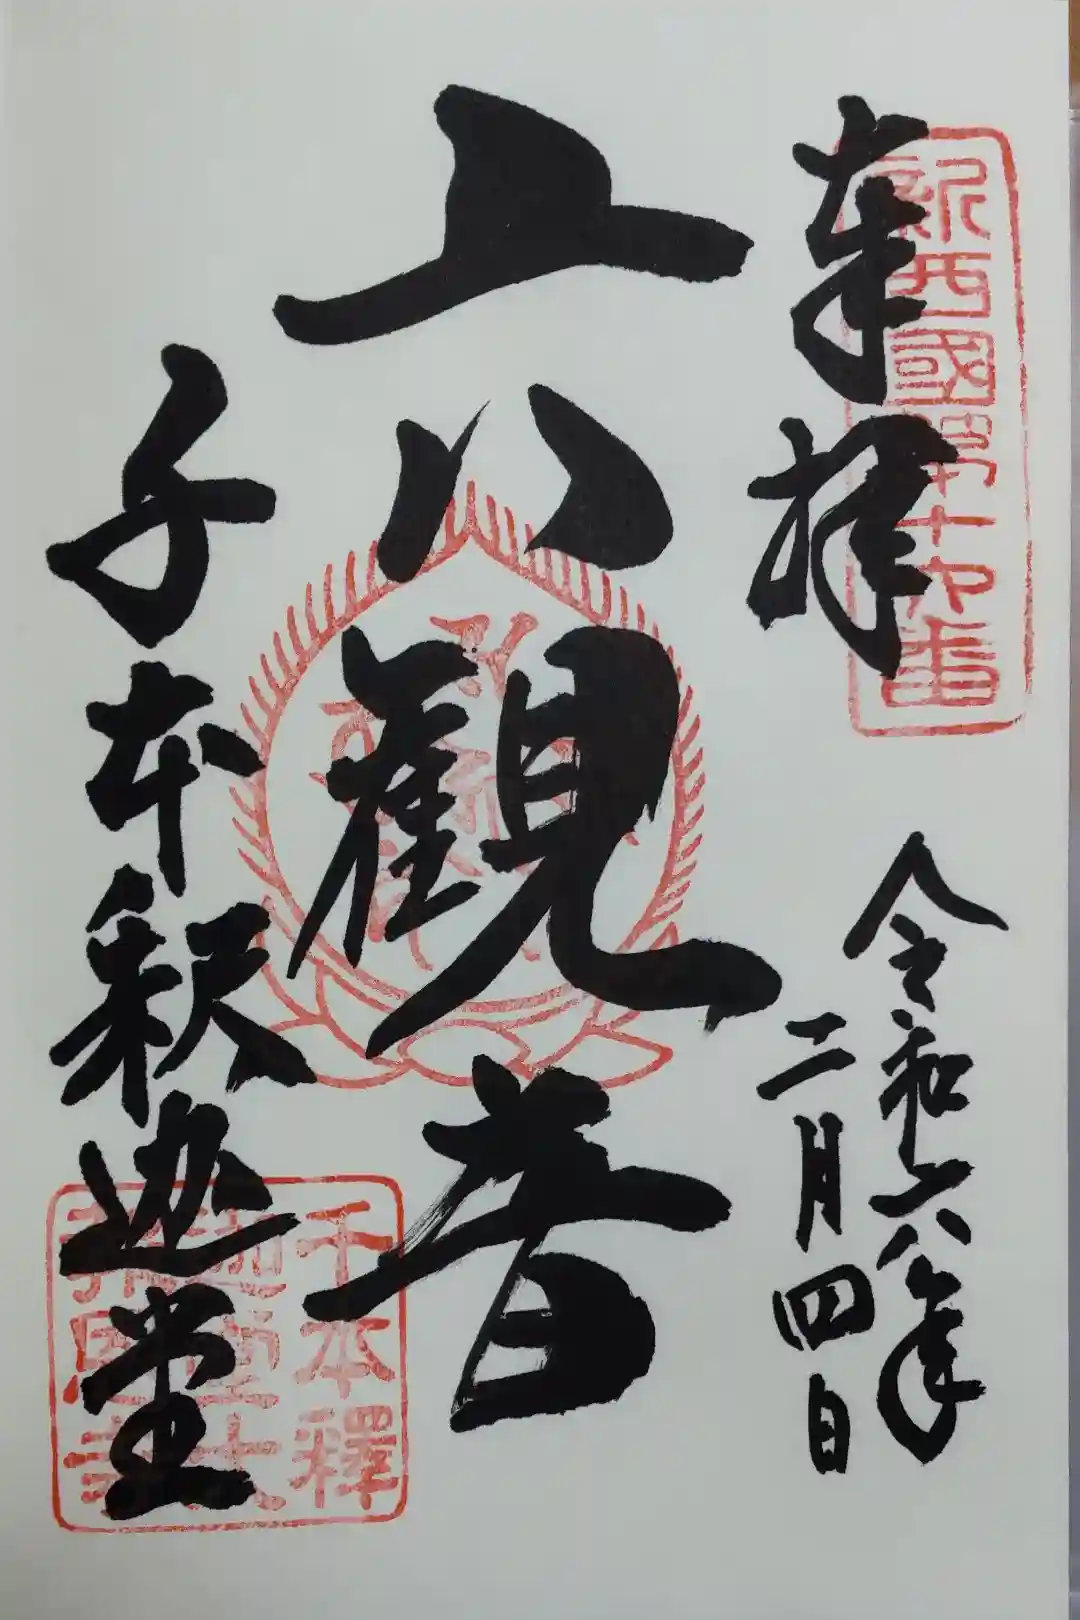 奉拝
新西國第十七番
令和六年
二月四日
六観音
千本釈迦堂
千本釋
迦堂大
報恩寺